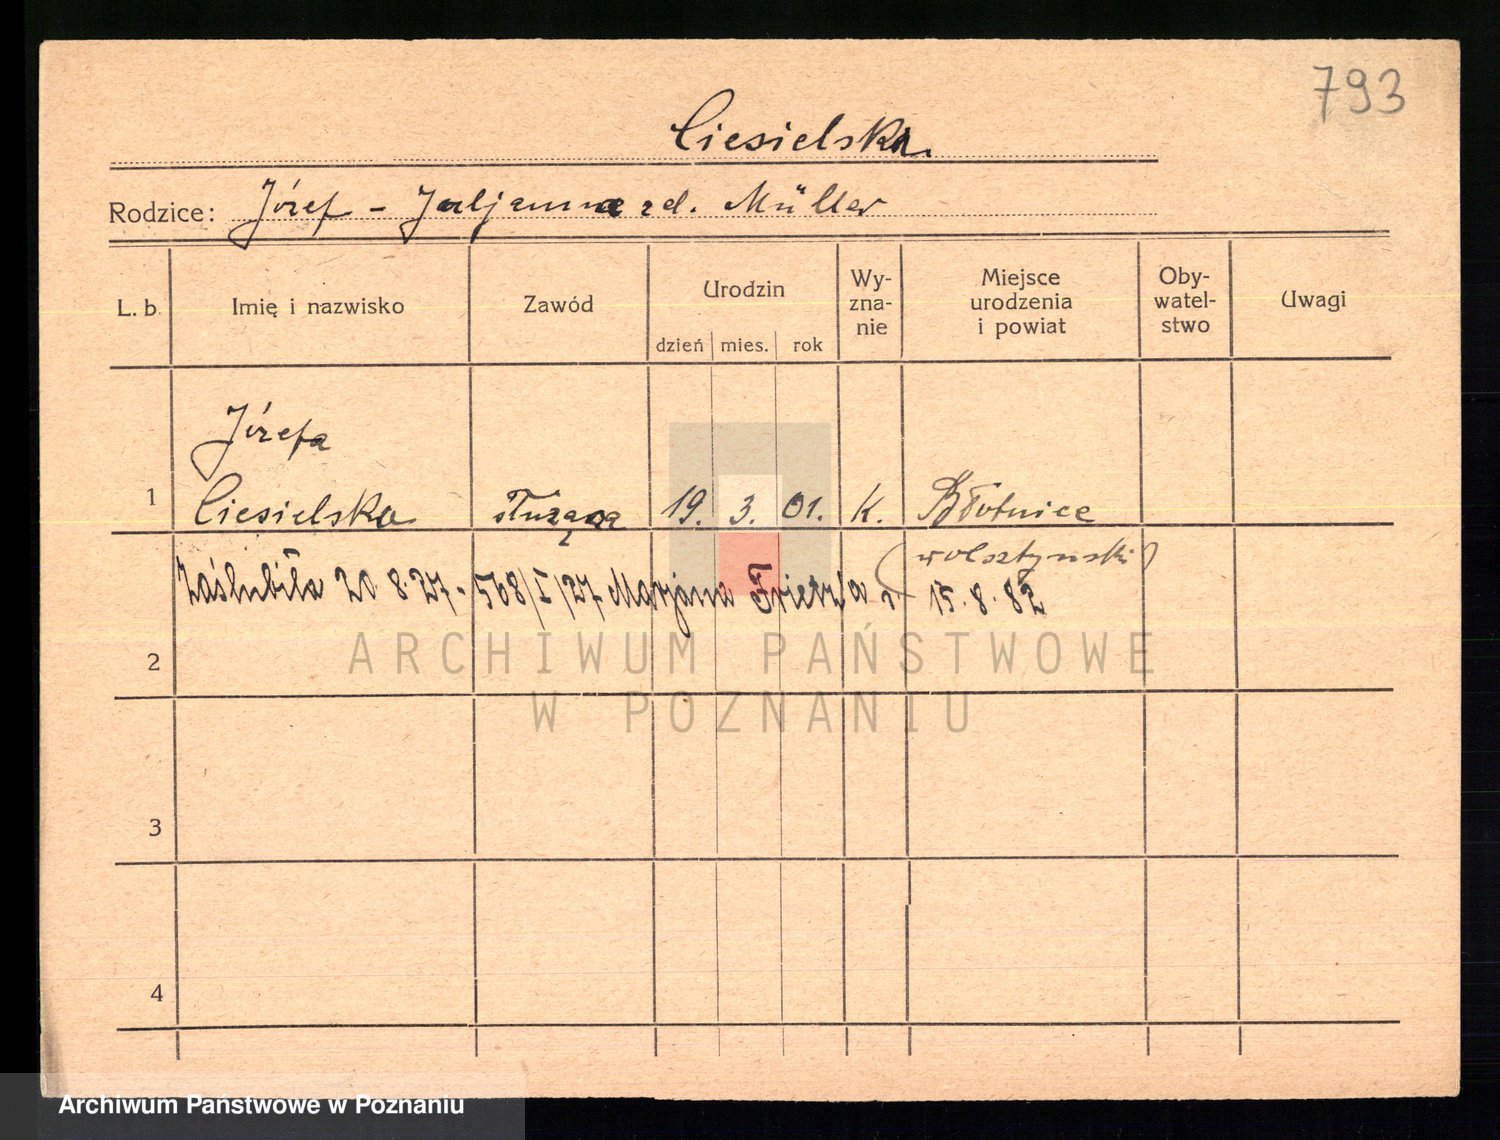 793
Ciesielska
Rodzice: Józef - Juljanna zd. Müller
L. b. Imię i nazwisko Zawód Urodzin Wy-zna-nie Miejsce urodzenia i powiat Oby-watel-stwo Uwagi
dzień mies. rok
Józefa
1 Ciesielska służąca 19. 3. 01. K. Błotnice
(wolsztyński)
Zaślubiła 20.8.27 - 508/I/27 Marjana 15.8.82
2
ARCHIWUM PAŃSTWOWE
W POZNANIU
3
4
Archiwum Państwowe w Poznaniu